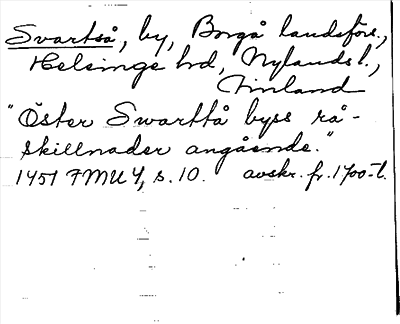 Svartså, by, Borgå landsförs.,
Helsinge hd, Nylands l.,
Finland
"Öster Swarttå byss rå-
skillnader angående."
1451 FMU 4, s. 10. avskr. fr. 1700-t.